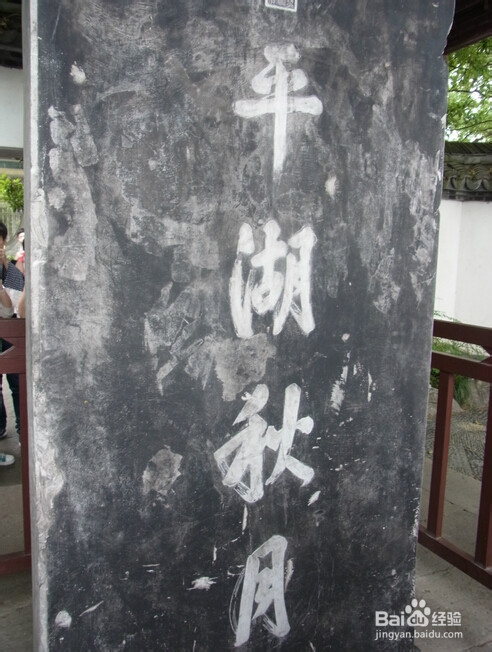 平湖秋月
Baidu 经验
jingyan.baidu.com